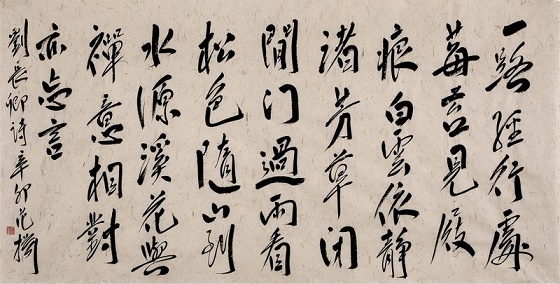 一路經行處
莓苔見屐
痕白雲依靜
渚芳草闭
閒门過雨看
松色隨山到
水源溪花與
禪意相對
亦忘言
劉長卿詩辛卯范